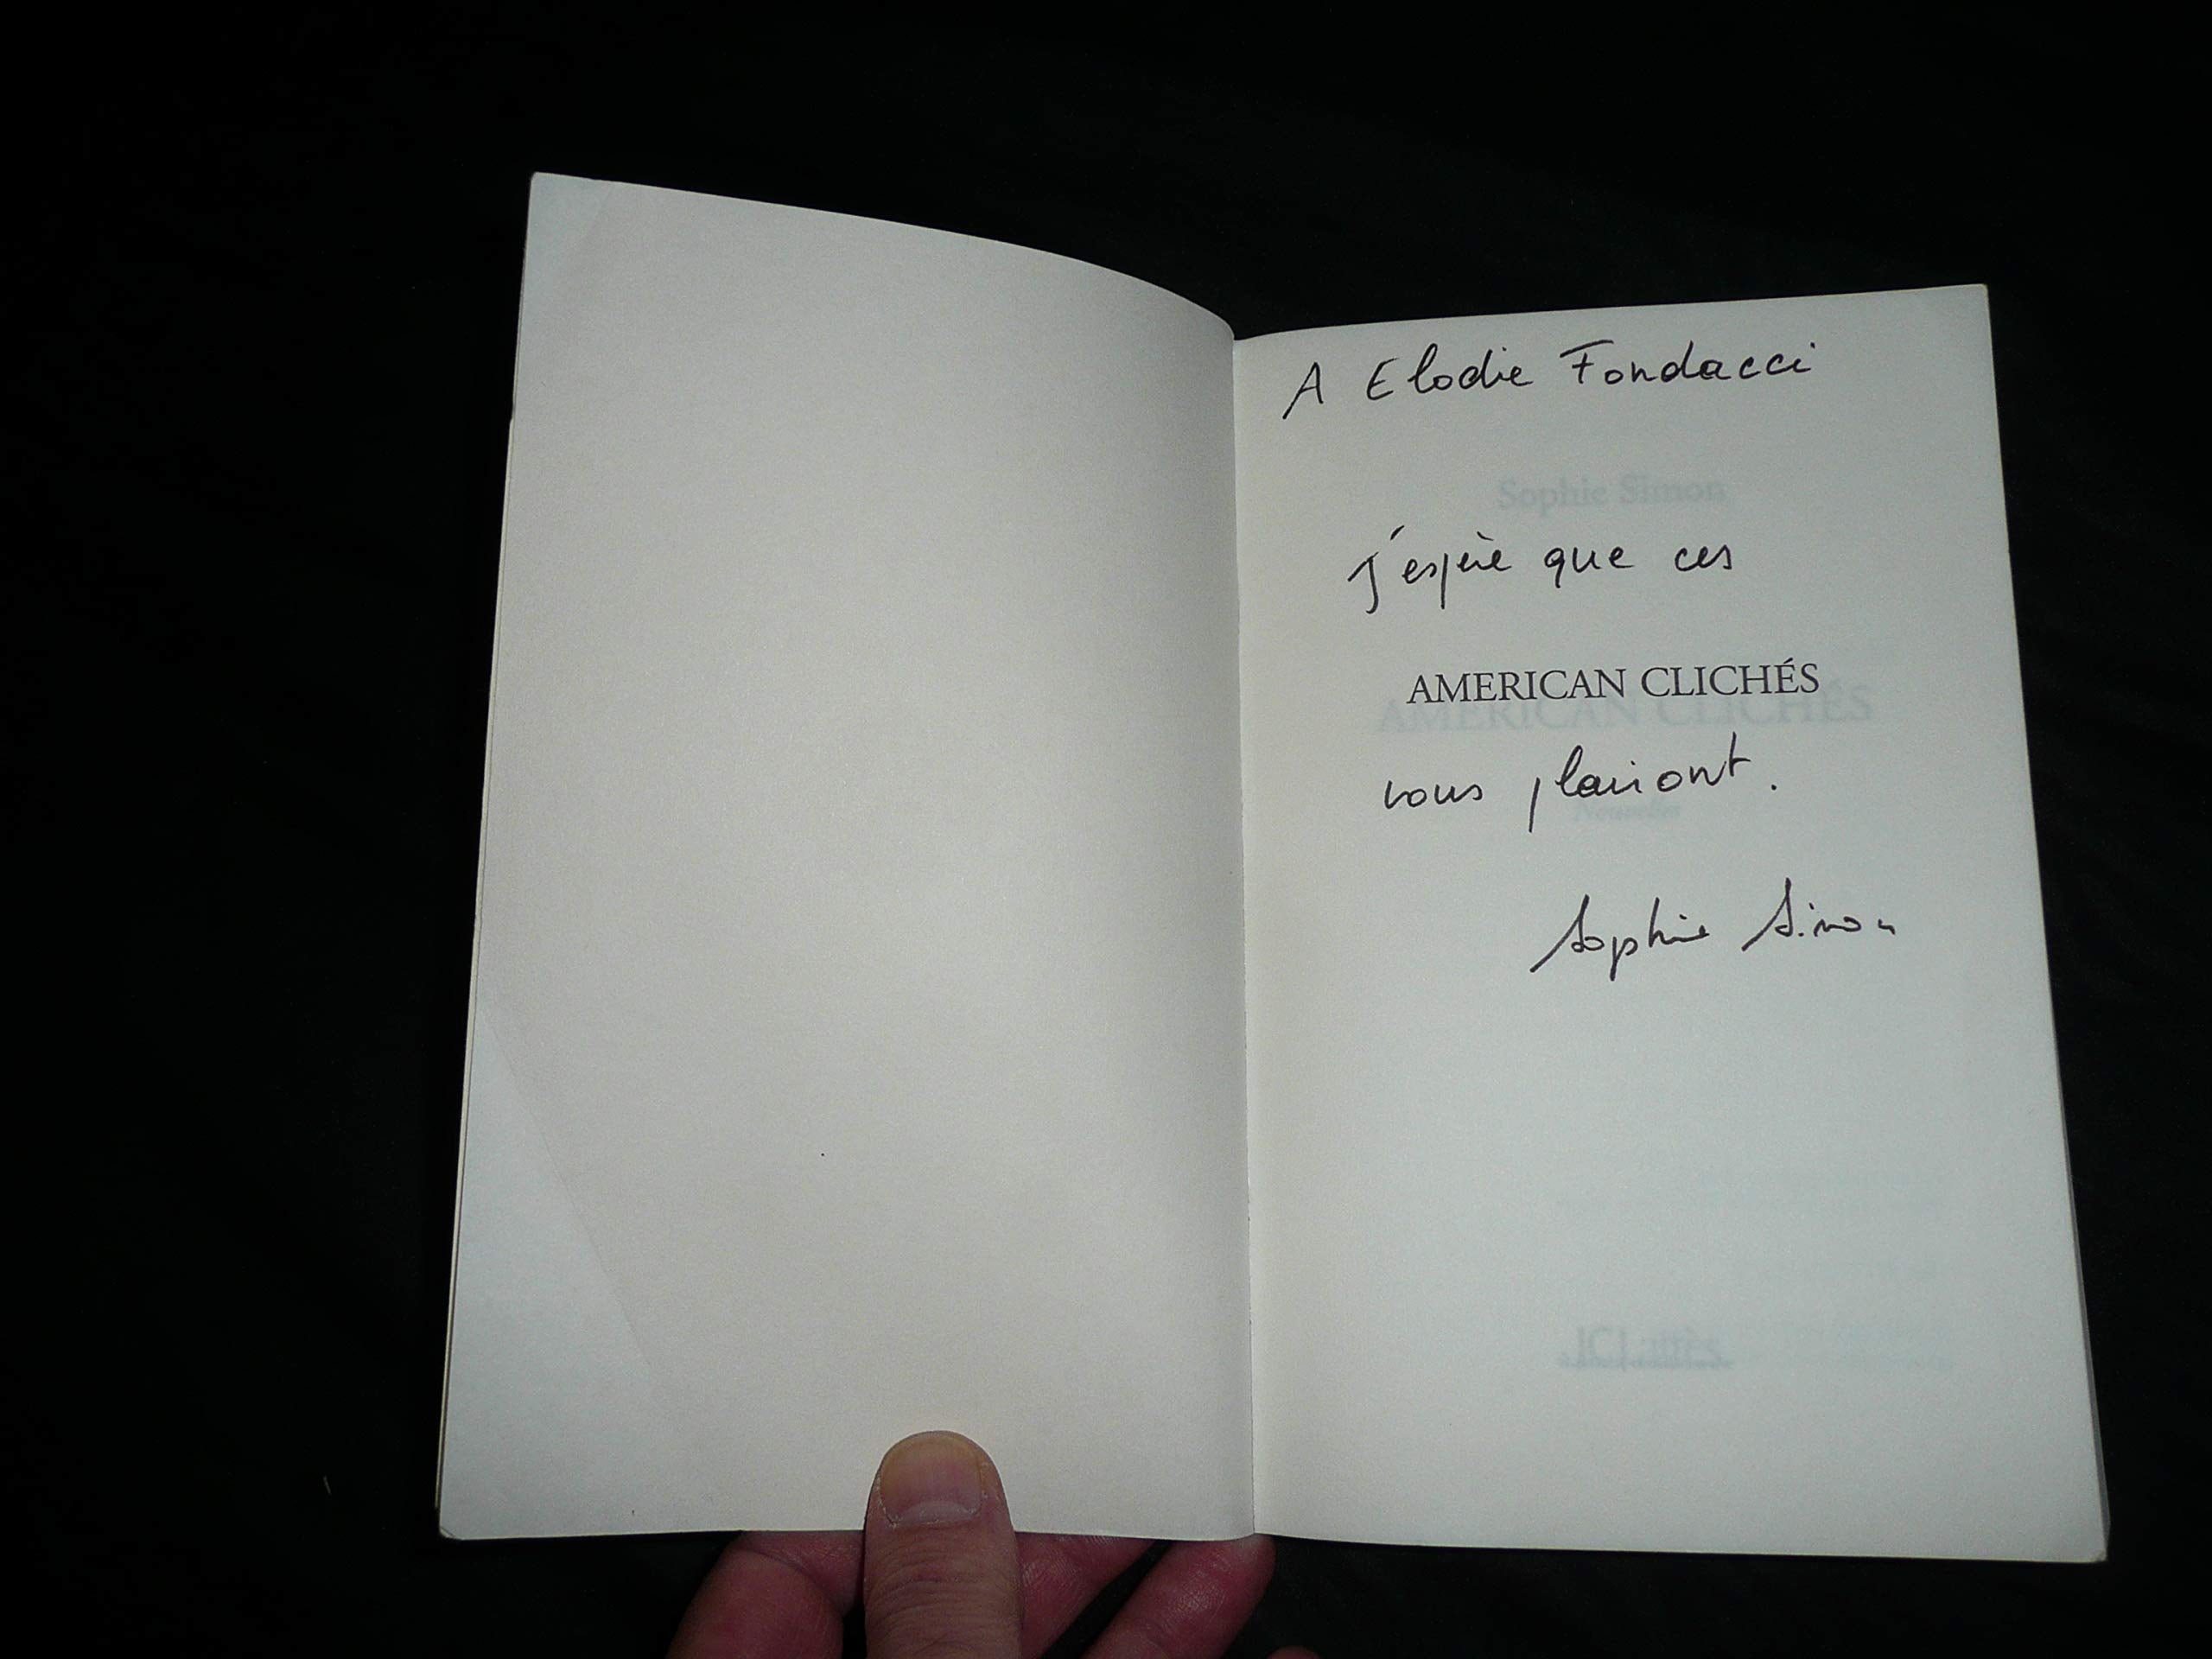 A Elodie Fondacci
Sophie Simon
J'espère que ces
AMERICAN CLICHÉS
AMERICAN CLICHÉS
vous plairont.
Nouvelles
Sophie Simon
JC Lattès